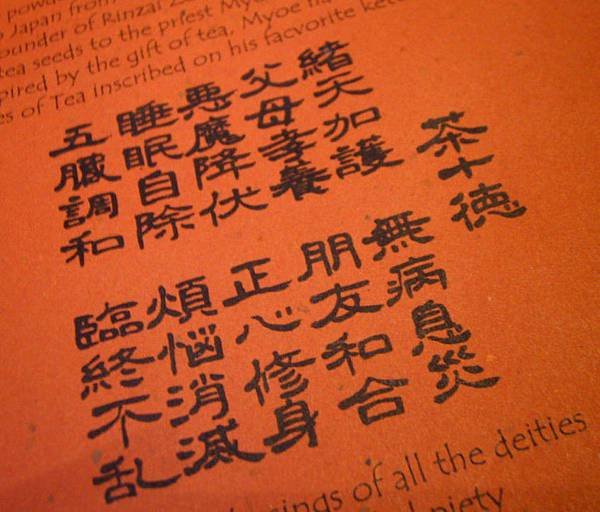 Japan from
of Rinzai
tea seeds to the priest
by the gift of tea, Myoe
of Tea inscribed on his facvorite
茶十徳
緒天加護
父母孝養
悪魔降伏
睡眠自除
五臓調和
無病息災
朋友和合
正心修身
煩悩消滅
臨終不乱
of all the deities
piety